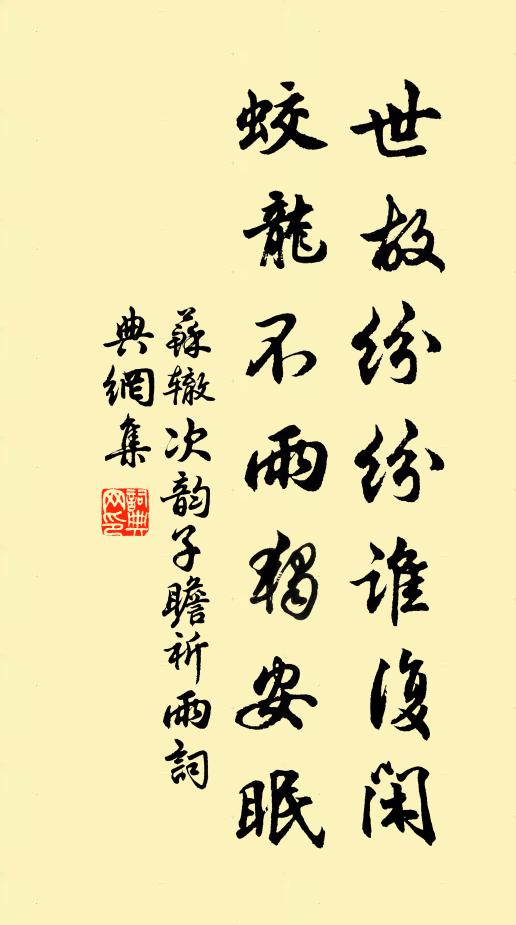 世故紛紛誰復閑
蛟龍不雨獨安眠
蘇轍次韵子瞻祈雨詞
典網集
詞典網印